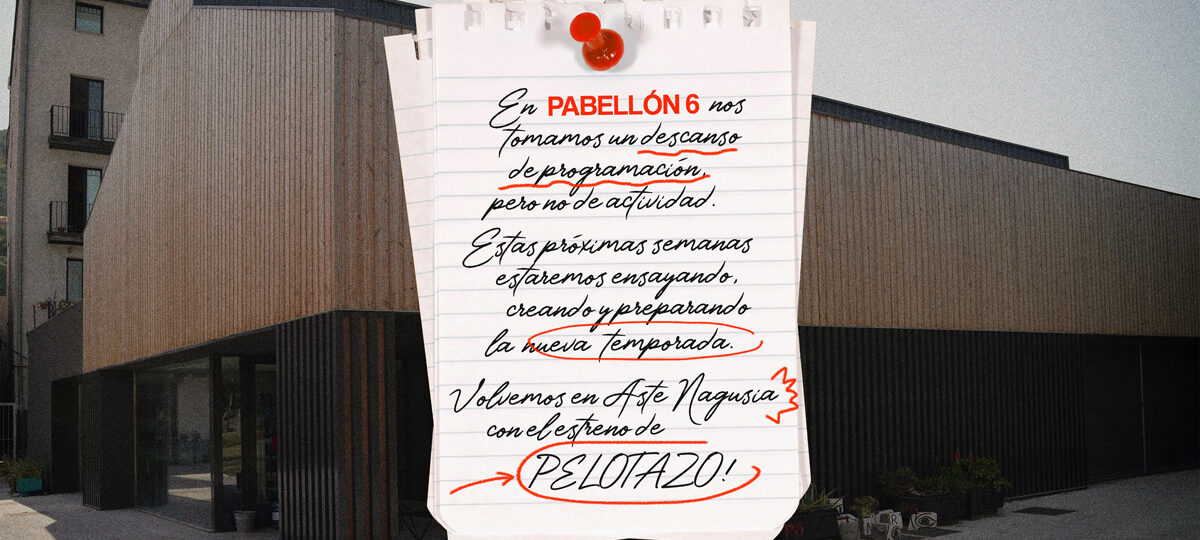 En PABELLÓN 6 nos
tomamos un descanso
de programación,
pero no de actividad.
Estas próximas semanas
estaremos ensayando,
creando y preparando
la nueva temporada.
Volvemos en Aste Nagusia
con el estreno de
PELOTAZO!